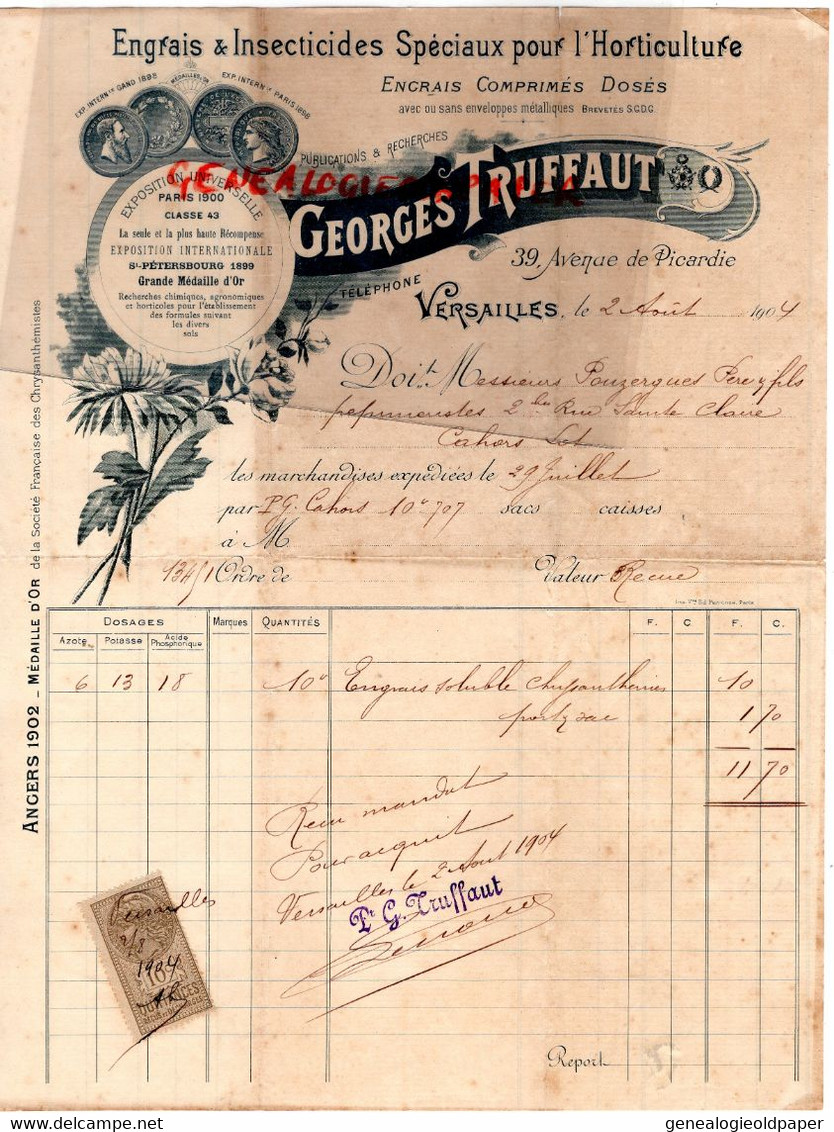 Engrais & Insecticides Spéciaux pour l'Horticulture
Engrais Comprimés Dosés
avec ou sans enveloppes métalliques Brevetés S.G.D.G.
EXP. INTERN.le GAND 1898
MÉDAILLES D'OR
EXP. INTERN.le PARIS 1898
PUBLICATIONS & RECHERCHES
GENEALOGIE
GEORGES TRUFFAUT
EXPOSITION UNIVERSELLE
PARIS 1900
CLASSE 43
La seule et la plus haute Récompense
EXPOSITION INTERNATIONALE
St-PÉTERSBOURG 1899
Grande Médaille d'Or
Recherches chimiques, agronomiques
et horticoles pour l'établissement
des formules suivant
les divers
sols
39, Avenue de Picardie
TÉLÉPHONE
VERSAILLES, le 2 Août 1904
Doit Messieurs Pouzergues Père & fils
pépinieristes 2 bis Rue Sainte Claire
Cahors Lot
les marchandises expédiées le 29 Juillet
par P.G. Cahors 10k 707 sacs caisses
à M
134/1 Ordre de Valeur Recue
ANGERS 1902 _ MÉDAILLE D'OR de la Société Française des Chrysanthémistes
DOSAGES Marques QUANTITÉS F. C F. C.
Azote Potasse Acide Phosphorique
6 13 18 10k Engrais soluble chrysanthèmes 10
port & sac 1 70
11 70
Recu mandat
Pour acquit
Versailles le 2 Août 1904
Pr G. Truffaut
Versailles
2/8
1904
10c
QUITTANCES
Report
genealogieoldpaper genealogieoldpaper